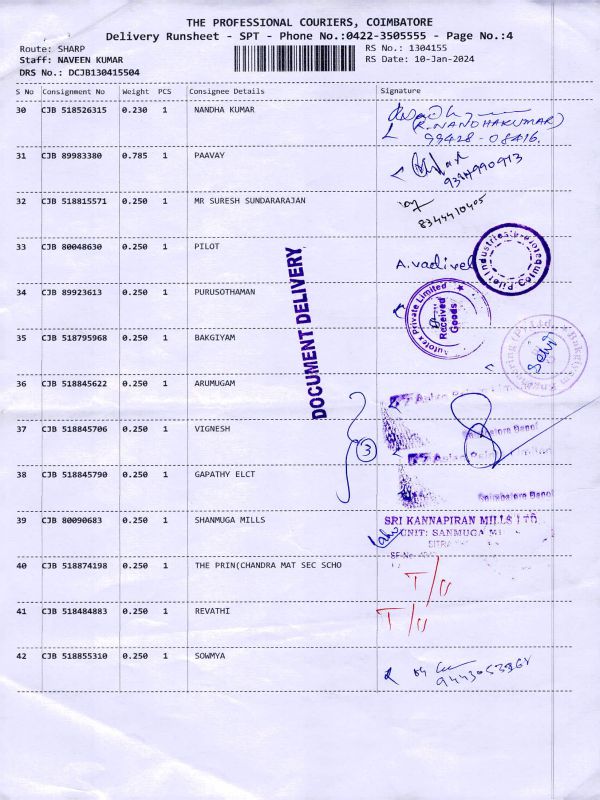 THE PROFESSIONAL COURIERS, COIMBATORE
Delivery Runsheet - SPT - Phone No.:0422-3505555 - Page No.:4
Route: SHARP
RS No.: 1304155
Staff: NAVEEN KUMAR
RS Date: 10-Jan-2024
DRS No.: DCJB130415504
S No Consignment No Weight PCS Consignee Details Signature
30 CJB 518526315 0.230 1 NANDHA KUMAR
(R.NANDHAKUMAR)
99428-08416.
31 CJB 89983380 0.785 1 PAAVAY
32 CJB 518815571 0.250 1 MR SURESH SUNDARARAJAN
8344410405
33 CJB 80048630 0.250 1 PILOT
A.vadivel
Pilot Industries
34 CJB 89923613 0.250 1 PURUSOTHAMAN
Autotex Private Limited
Received
Goods
DOCUMENT DELIVERY
35 CJB 518795968 0.250 1 BAKGIYAM
Selvi
36 CJB 518845622 0.250 1 ARUMUGAM
37 CJB 518845706 0.250 1 VIGNESH
3
38 CJB 518845790 0.250 1 GAPATHY ELCT
39 CJB 80090683 0.250 1 SHANMUGA MILLS
SRI KANNAPIRAN MILLS LTD
UNIT: SANMUGA MI
SITRA
40 CJB 518874198 0.250 1 THE PRIN(CHANDRA MAT SEC SCHO
41 CJB 518484883 0.250 1 REVATHI
42 CJB 518855310 0.250 1 SOWMYA